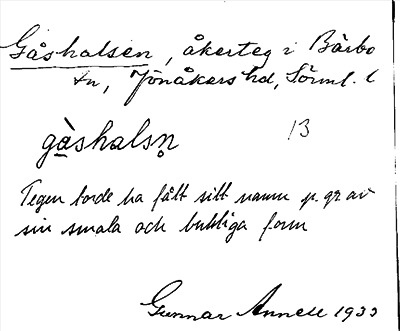 Gåshalsen, åkerteg i Bärbo
sn, Jönåkers hd, Sörml. l
13
gåshalsn̥
Tegen torde ha fått sitt namn p. gr. av
sin smala och buktiga form
Gunnar 1933